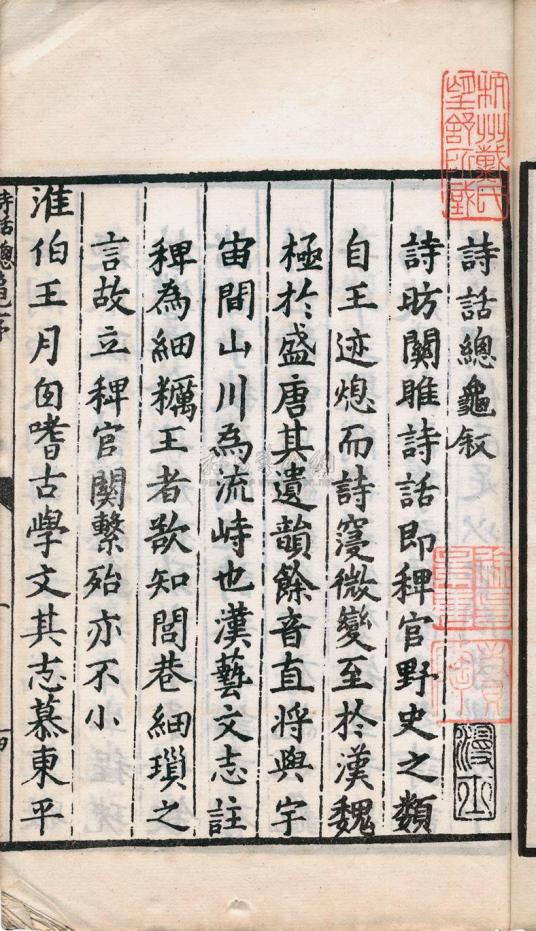 杭州戴氏
望舒所藏
詩話總龜叙
詩昉關雎詩話即稗官野史之類
自王迹熄而詩寖微變至於漢魏
極於盛唐其遺韻餘音直將與宇
宙間山川為流峙也漢藝文志註
稗為細糲王者欲知閭巷細瑣之
言故立稗官關繫殆亦不小
淮伯王月囱嗜古學文其志慕東平
詩話總龜序